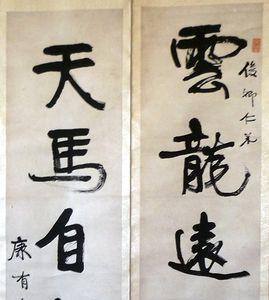 俊卿仁弟
雲龍遠
天馬自
康有